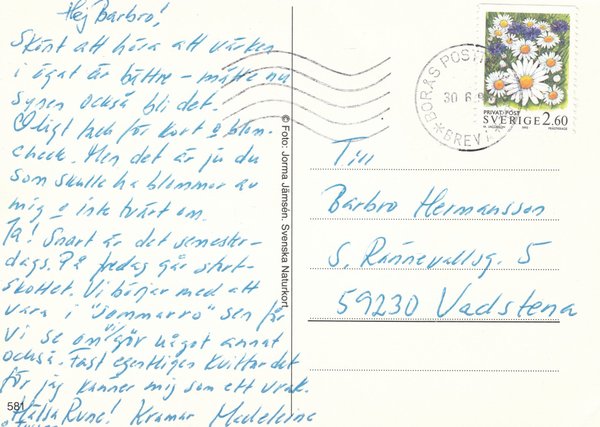 Hej Barbro!
Skönt att höra att värken
i ögat är bättre – måtte nu
synen också bli det.
Otligt tack för kort o blom-
check. Men det är ju du
som skulle ha blommor av
mig o inte tvärt om.
Ja! Snart är det semester-
dags. På fredag går start-
skottet. Vi börjar med att
vara i "Sommarro" sen får
vi se om vi gör något annat
också. Fast egentligen kvittar det
för jag känner mig som ett vrak.
Hälsa Rune! Kramar Madeleine
581
© Foto: Jorma Jämsén. Svenska Naturkort
BORÅS POSTT
30 6.9
BREV
PRIVATPOST
SVERIGE 2.60
Till
Barbro Hermansson
S. Rännevallsg. 5
59230 Vadstena